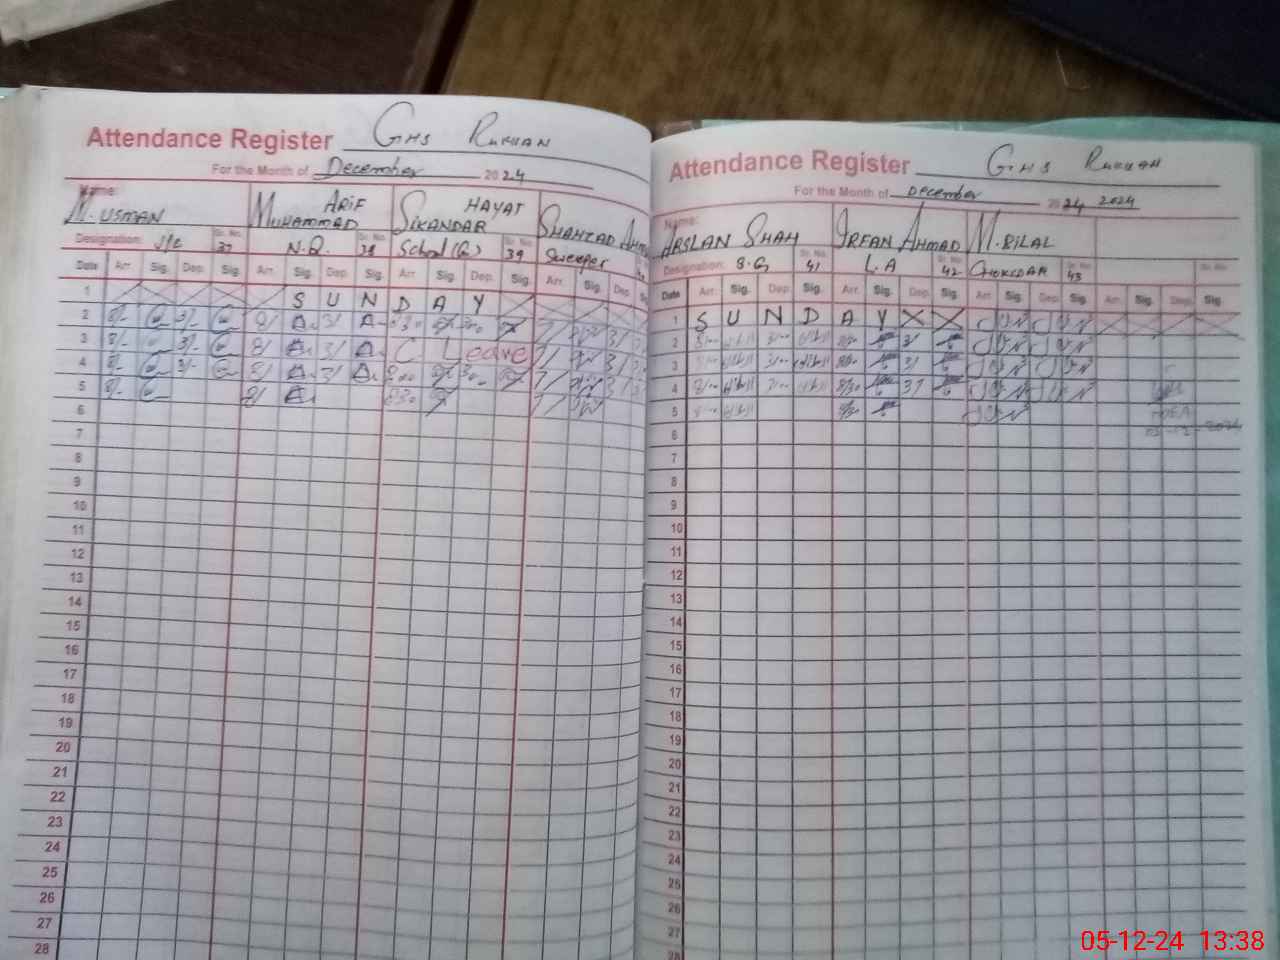 Attendance Register GHS RUKHAN
For the Month of December 2024
Name: M. USMAN MUHAMMAD ARIF SIKANDAR HAYAT SHAHZAD AHM
Designation: J/C Sr. No. 37 N.Q. Sr. No. 38 School (G) Sr. No. 39 Sweeper
Date Arr. Sig. Dep. Sig. Arr. Sig. Dep. Sig. Arr. Sig. Dep. Sig. Arr. Sig. Dep.
1 S U N D A Y
2 8/- 3/- 8/ 3/ 830 300 7/ 3/
3 8/- 3/- 8/ 3/ C Leave 7/ 3/
4 8/- 3/- 8/ 3/ 800 300 7/ 3/
5 8/- 8/ 830 7/
6
7
8
9
10
11
12
13
14
15
16
17
18
19
20
21
22
23
24
25
26
27
28
Attendance Register GHS RUKHAN
For the Month of December 2024 2024
Name: ARSLAN SHAH IRFAN AHMAD M. BILAL
Designation: S.G Sr. No. 41 L.A Sr. No. 42 CHOKIDAR Sr. No. 43 Sr. No.
Date Arr. Sig. Dep. Sig. Arr. Sig. Dep. Sig. Arr. Sig. Dep. Sig. Arr. Sig. Dep. Sig.
1 S U N D A Y
2 8/00 3/00 8/30 3/
3 8/00 3/00 8/30 3/
4 8/00 3/00 8/30 3/
5 8/00 8/30
6
7
8
9
10
11
12
13
14
15
16
17
18
19
20
21
22
23
24
25
26
27
28
05-12-24 13:38